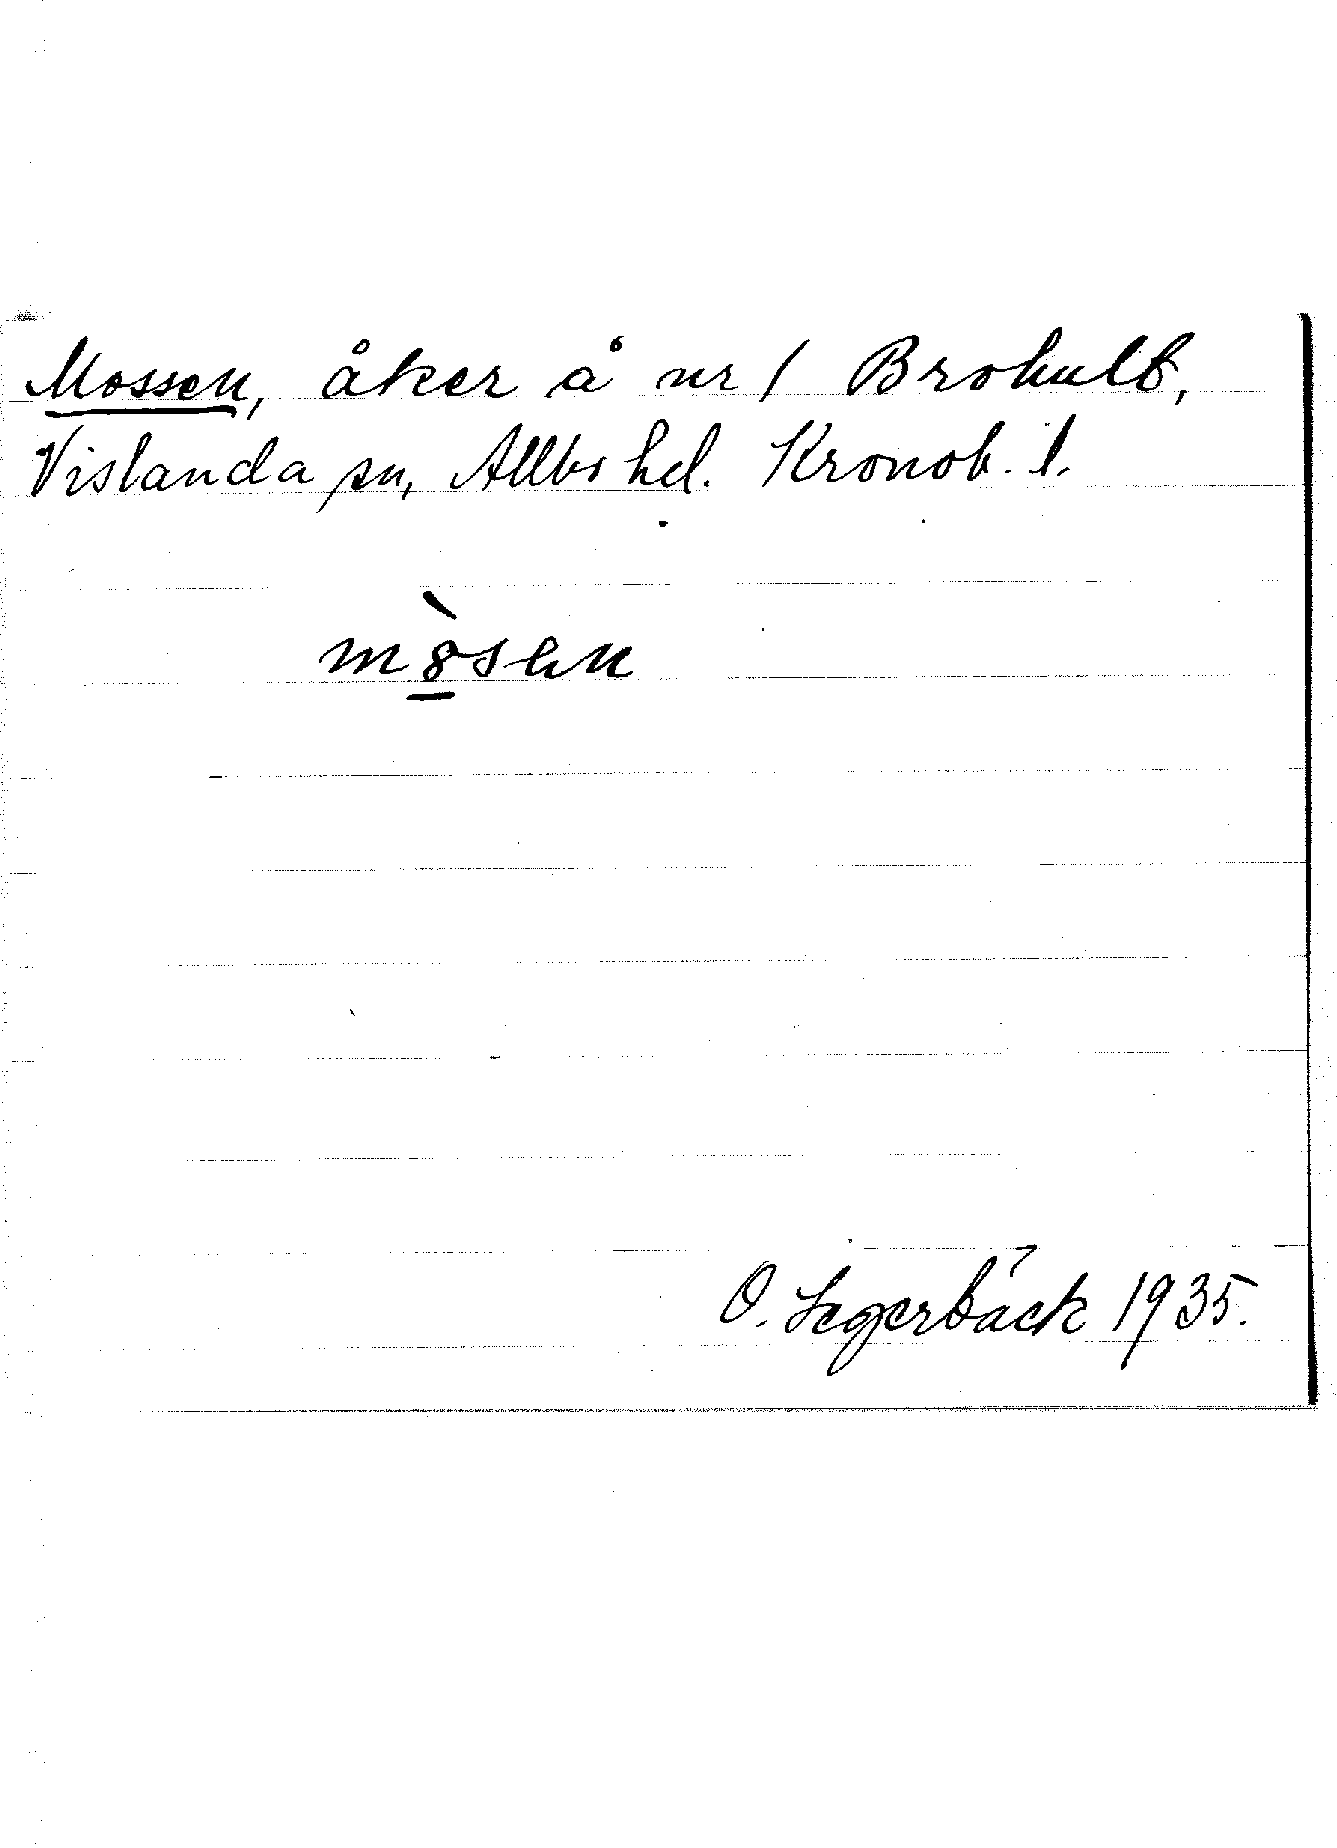 Mossen, åker å nr 1 Brohult,
Vislanda sn, Allbo hd. Kronob. l.
m8̲̀sen
O. Segerbäck 1935.